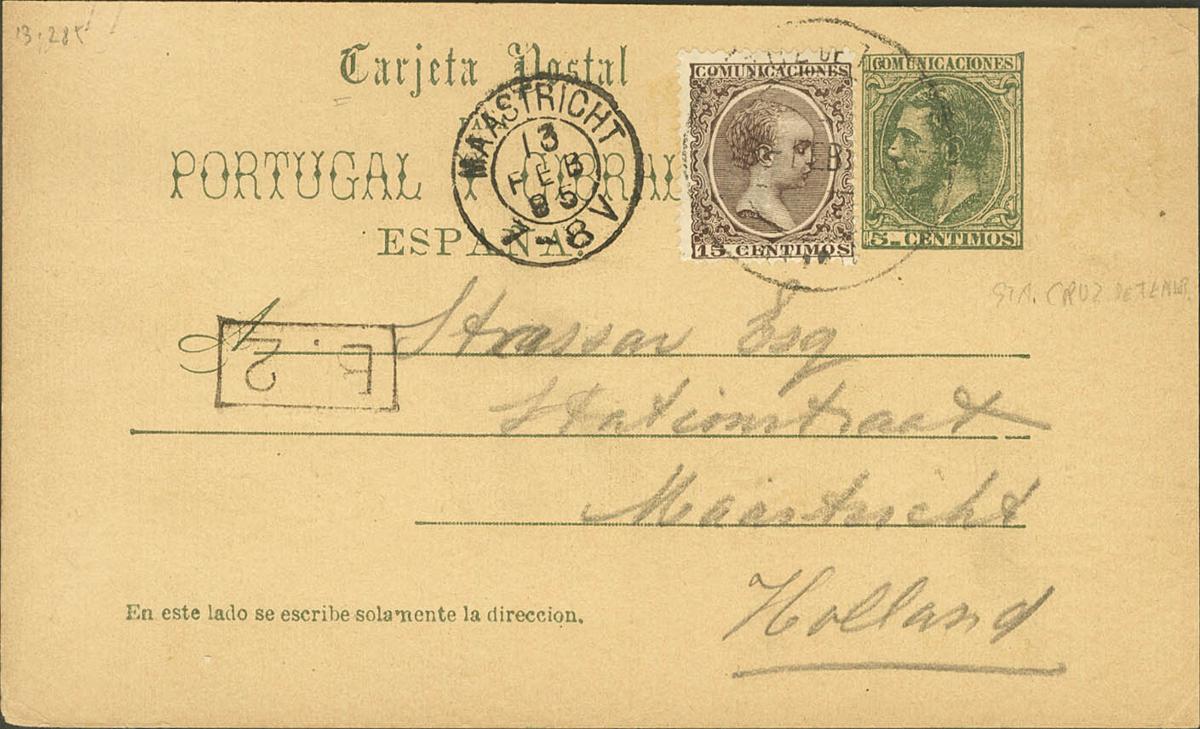 13.285
Tarjeta Postal
PORTUGAL Y GIBRAL
ESPAÑA.
MAASTRICHT
13
FEB
95
7-8 V
COMUNICACIONES
15 CENTIMOS
EB
COMUNICACIONES
5 CENTIMOS
STA. CRUZ DE TENER.
A Strassar Esq
E.2
Stationstraat
Maastricht
Holland
En este lado se escribe solamente la direccion.